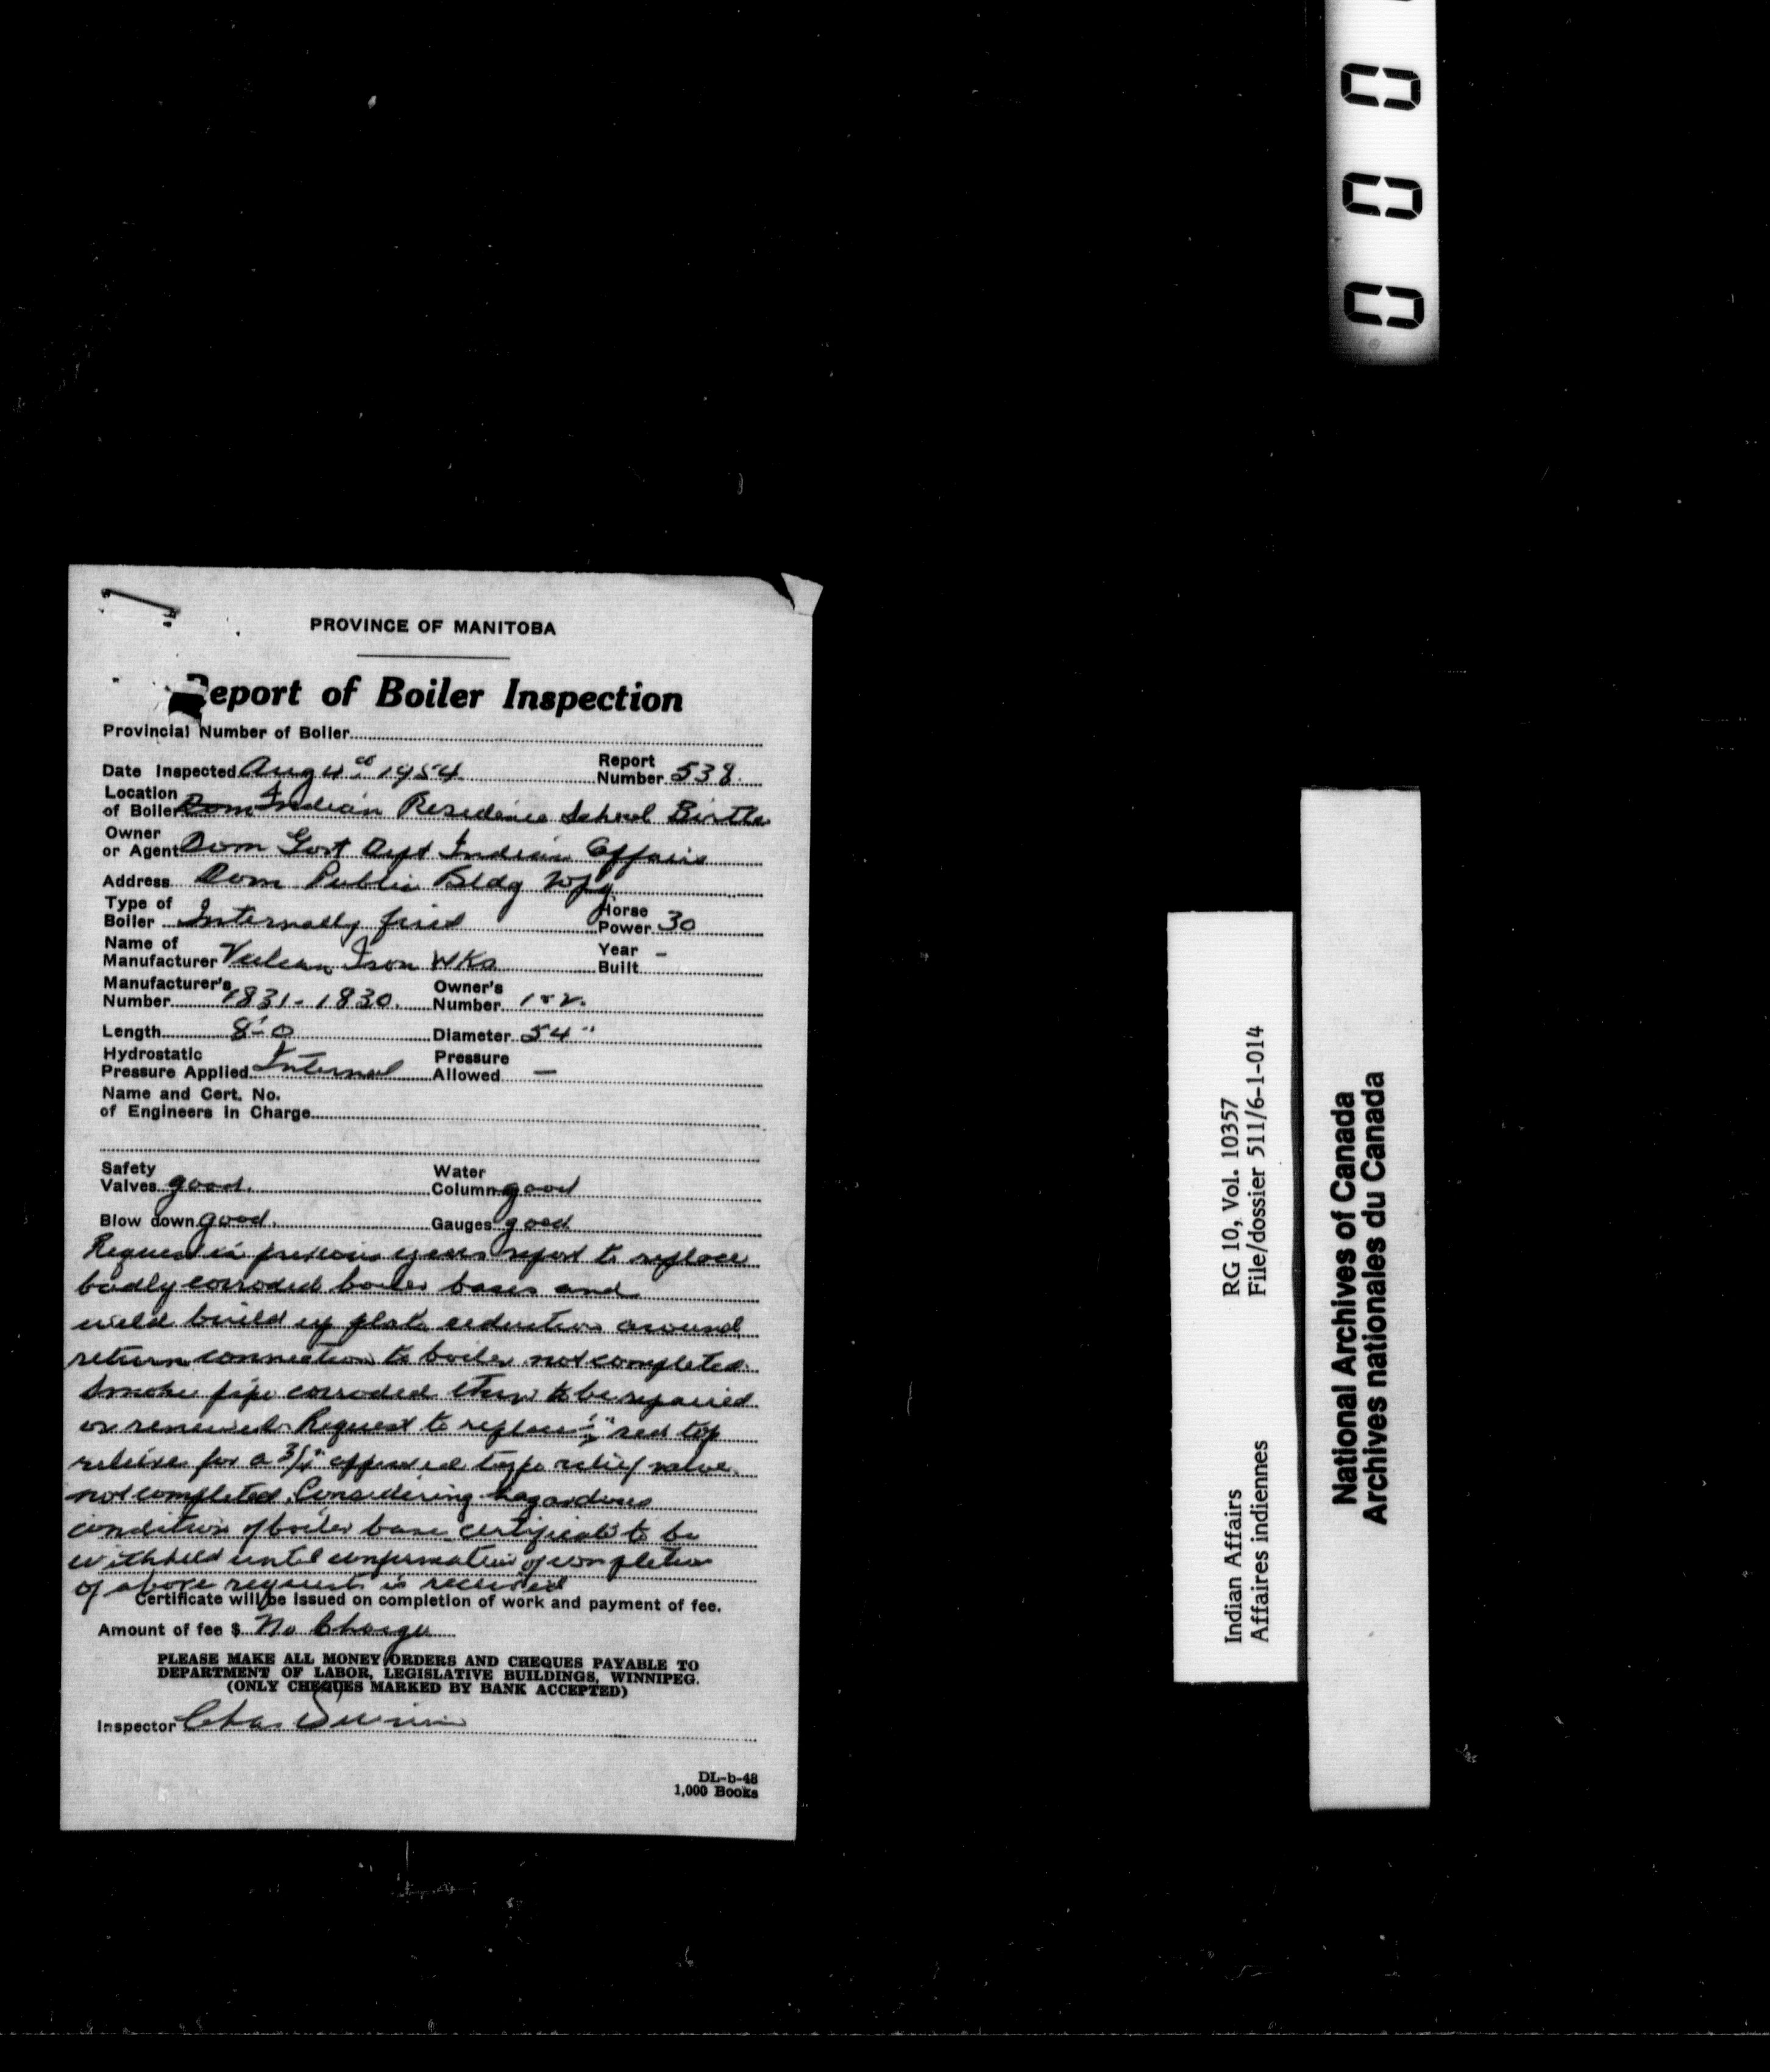 PROVINCE OF MANITOBA
Report of Boiler Inspection
Provincial Number of Boiler
Date Inspected Aug 4 1954 Report Number 538.
Location of Boiler Dom Indian Residence School Birtle
Owner or Agent Dom Govt Dept Indian Affairs
Address Dom Public Bldg Wpg
Type of Boiler Internally fired Horse Power 30
Name of Manufacturer Vulcan Iron WKs Year Built -
Manufacturer's Number 1831-1830. Owner's Number 1
Length 8'-0 Diameter 54"
Hydrostatic Pressure Applied Internal Pressure Allowed —
Name and Cert. No.
of Engineers in Charge
Safety Valves good. Water Column good
Blow down good. Gauges good
Request in previous years report to replace
badly corroded boiler bases and
weld build up plate reduction around
return connection to boiler not completed.
Smoke pipe corroded to be repaired
or renewed. Request to replace red top
relieve for a 3/4" approved type relief valve
not completed. Considering hazardous
condition of boiler base certificate to be
withheld until confirmation of completion
of above requests is received
Certificate will be issued on completion of work and payment of fee.
Amount of fee $ No Charge
PLEASE MAKE ALL MONEY ORDERS AND CHEQUES PAYABLE TO
DEPARTMENT OF LABOR, LEGISLATIVE BUILDINGS, WINNIPEG.
(ONLY CHEQUES MARKED BY BANK ACCEPTED)
Inspector Chas
DL-b-48
1,000 Books
000
Indian Affairs RG 10, Vol. 10357
Affaires indiennes File/dossier 511/6-1-014
National Archives of Canada
Archives nationales du Canada